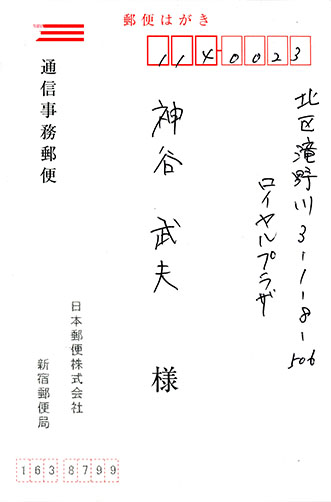 郵便はがき
114-0023
北区滝野川3-1-8-506
ロイヤルプラザ
神谷武夫
様
通信事務郵便
日本郵便株式会社
新宿郵便局
1638799